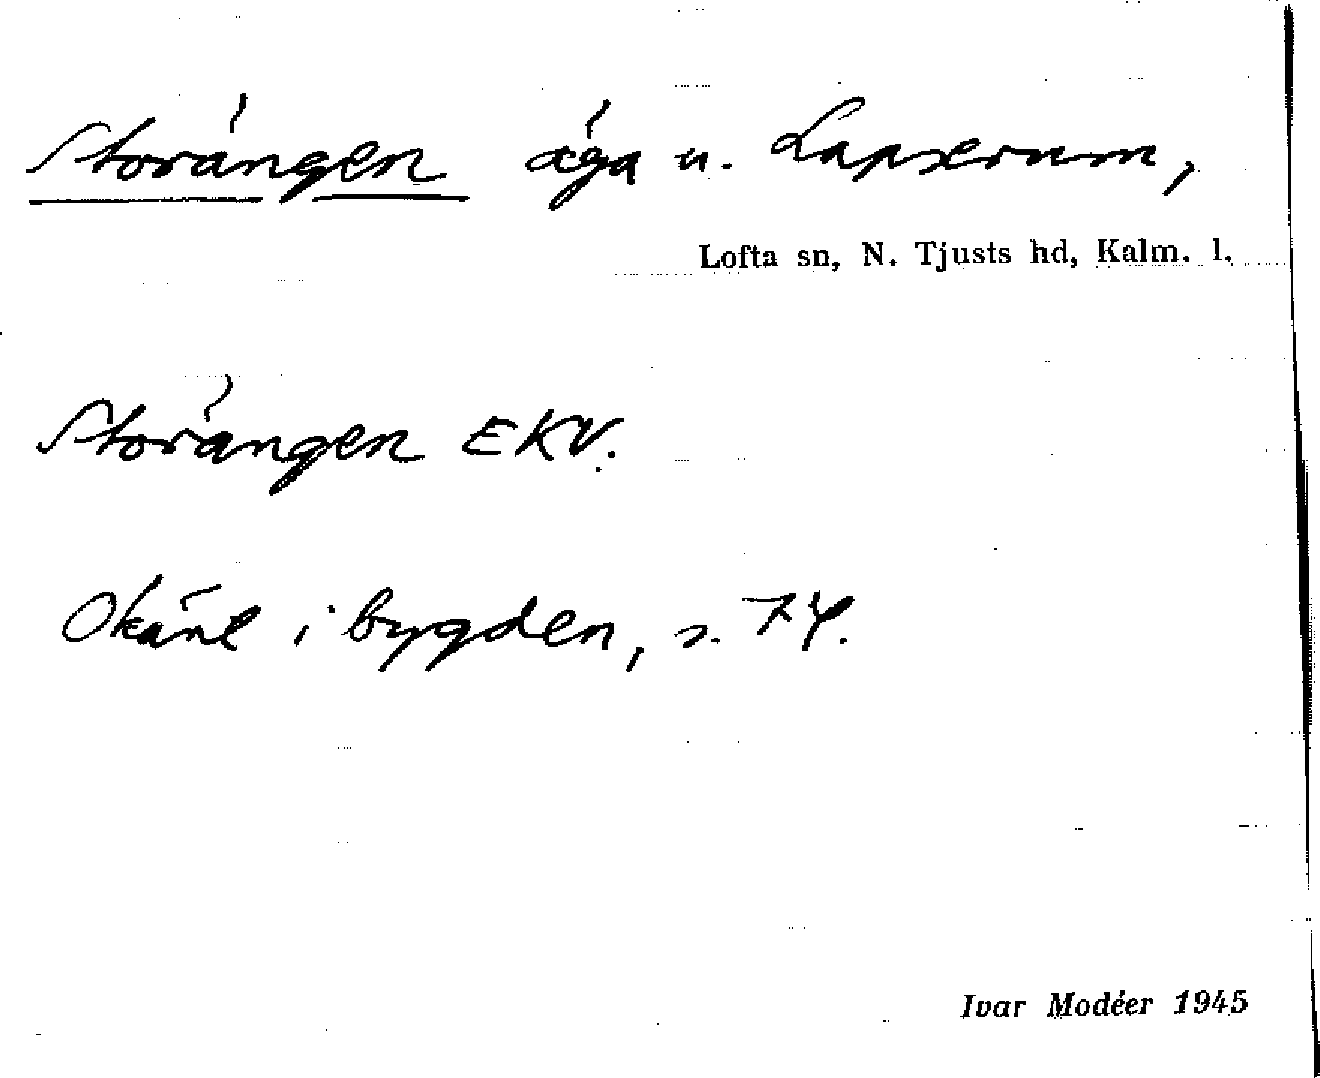 Storängen äga u. Lapserum,
Lofta sn, N. Tjusts hd, Kalm. l.
Storängen EKV.
Okänt i bygden, s. 74.
Ivar Modéer 1945